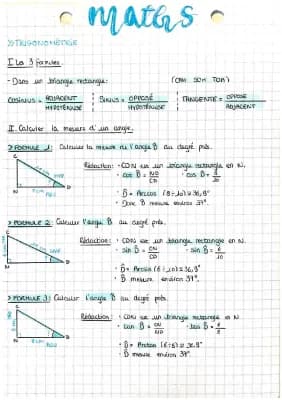 maths
TRIGONOMÉTRIE
I Les 3 formules.
- Dans un triangle rectangle: (CAH SOH TOA)
COSINUS = ADJACENT / HYPOTÉNUSE SINUS = OPPOSÉ / HYPOTÉNUSE TANGENTE = OPPOSÉ / ADJACENT
II. Calculer la mesure d'un angle.
> FORMULE 1: Calculer la mesure de l'angle D̂ au degré près.
Rédaction: • CDN est un triangle rectangle en N.
• cos D̂ = ND / CD • cos D̂ = 8 / 10
• D̂ = Arccos (8 ÷ 10) ≈ 36,8°
• Donc D̂ mesure environ 37°.
> FORMULE 2: Calculer l'angle D̂ au degré près.
Rédaction: • CDN est un triangle rectangle en N.
• sin D̂ = CN / CD • sin D̂ = 6 / 10
• D̂ = Arcsin (6 ÷ 10) ≈ 36,8°
• D̂ mesure environ 37°.
> FORMULE 3: Calculer l'angle D̂ au degré près.
Rédaction: • CDN est un triangle rectangle en N
• tan D̂ = CN / ND • tan D̂ = 6 / 8
• D̂ = Arctan (6 ÷ 8) ≈ 36,8°
• D̂ mesure environ 37°.